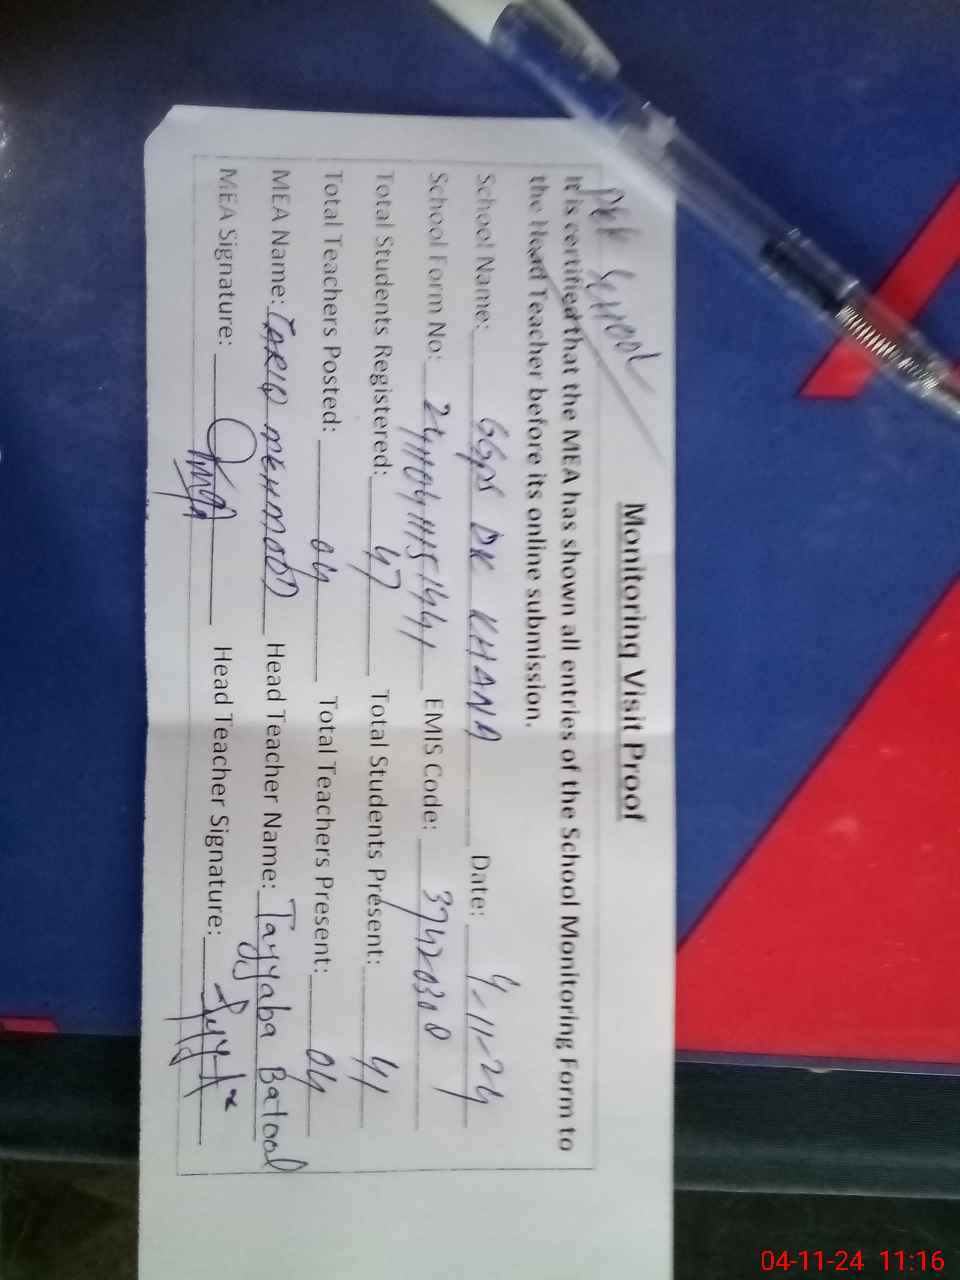 Monitoring Visit Proof
PEF School
It is certified that the MEA has shown all entries of the School Monitoring Form to
the Head Teacher before its online submission.
School Name: GGPS DK KHANA Date: 4-11-24
School Form No: EMIS Code: 37420308
Total Students Registered: 47 Total Students Present: 41
Total Teachers Posted: 04 Total Teachers Present: 04
MEA Name: TARIQ MEHMOOD Head Teacher Name: Tayyaba Batool
MEA Signature: Head Teacher Signature:
04-11-24 11:16